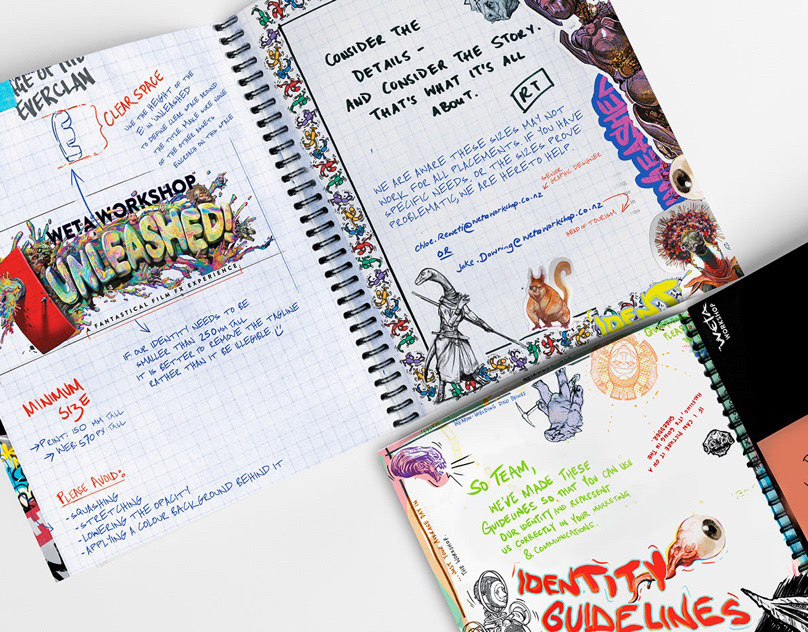 GE OF THE
EVERCLAN
CLEAR SPACE
USE THE HEIGHT OF THE
E IN UNLEASHED
TO DEFINE CLEAR SPACE AROUND
THE TITLE. MAKE SURE NONE
OF THE OTHER ASSETS
ENCROACH ON THIS SPACE
WETA WORKSHOP
UNLEASHED!
FANTASTICAL FILM FX EXPERIENCE
IF OUR IDENTITY NEEDS TO BE
SMALLER THAN 250mm TALL
IT IS BETTER TO REMOVE THE TAGLINE
RATHER THAN IT BE ILLEGIBLE
MINIMUM
SIZE
→ PRINT: 150 MM TALL
→ WEB: 570 PX TALL
PLEASE AVOID:
- SQUASHING
- STRETCHING
- LOWERING THE OPACITY
- APPLYING A COLOUR BACKGROUND BEHIND IT
CONSIDER THE
DETAILS -
AND CONSIDER THE STORY.
THAT'S WHAT IT'S ALL
ABOUT.
RT
WE ARE AWARE THESE SIZES MAY NOT
WORK FOR ALL PLACEMENTS. IF YOU HAVE
SPECIFIC NEEDS, OR THE SIZES PROVE
PROBLEMATIC, WE ARE HERE TO HELP
SENIOR
GRAPHIC DESIGNER
chloe.Reweti@wetaworkshop.co.nz
OR
jake.Downing@wetaworkshop.co.nz
HEAD OF TOURISM
UNLEASHED
IDENT
WETA
WORKSHOP
IF I CAN PICTURE IT ON A
SO TEAM,
WE'VE MADE THESE
GUIDELINES SO THAT YOU CAN USE
OUR IDENTITY AND REPRESENT
US CORRECTLY IN YOUR MARKETING
& COMMUNICATIONS.
THE WORKSHOP
IDENTITY
GUIDELINES